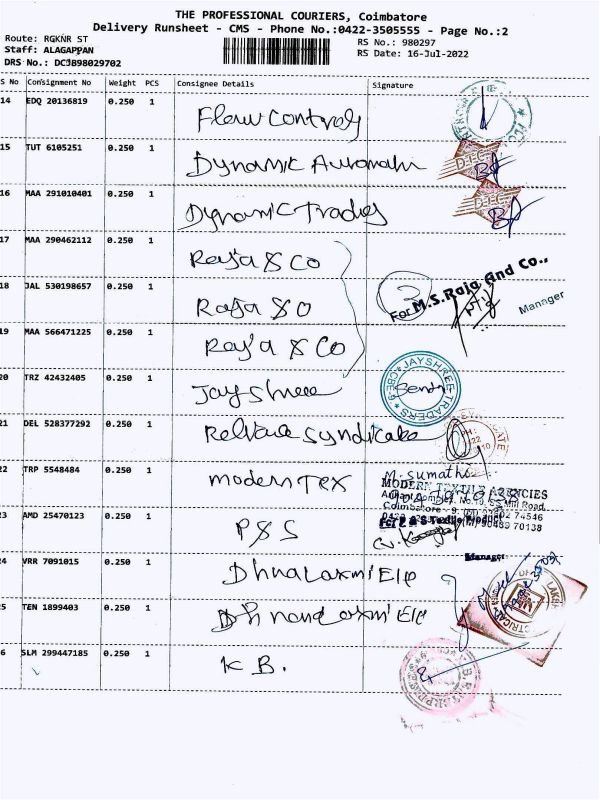 THE PROFESSIONAL COURIERS, Coimbatore
Delivery Runsheet - CMS - Phone No.:0422-3505555 - Page No.:2
Route: RGKNR ST
RS No.: 980297
Staff: ALAGAPPAN
RS Date: 16-Jul-2022
DRS No.: DCJB98029702
S No Consignment No Weight PCS Consignee Details Signature
14 EDQ 20136819 0.250 1 Flow Controls
15 TUT 6105251 0.250 1 Dynamic
D.T.C
16 MAA 291010401 0.250 1 Dynamic Trades
D.T.C
17 MAA 290462112 0.250 1 Raja & Co
18 JAL 530198657 0.250 1 Raja & Co
3
For M.S. Raja And Co.,
Manager
19 MAA 566471225 0.250 1 Raja & Co
20 TRZ 42432405 0.250 1 Jayshree
JAYSHREE TRADERS CBE-9
21 DEL 528377292 0.250 1 Reliance Syndicate
22 TRP 5548484 0.250 1 Modern Tex
M. Sumathi
MODERN TEXTILE AGENCIES
23 AMD 25470123 0.250 1 P & S
For P & S Textile Product
Manager
24 VRR 7091015 0.250 1 Dhnalaxmi Ele
25 TEN 1899403 0.250 1 Dhnandlaxmi Ele
6 SLM 299447185 0.250 1 K B.